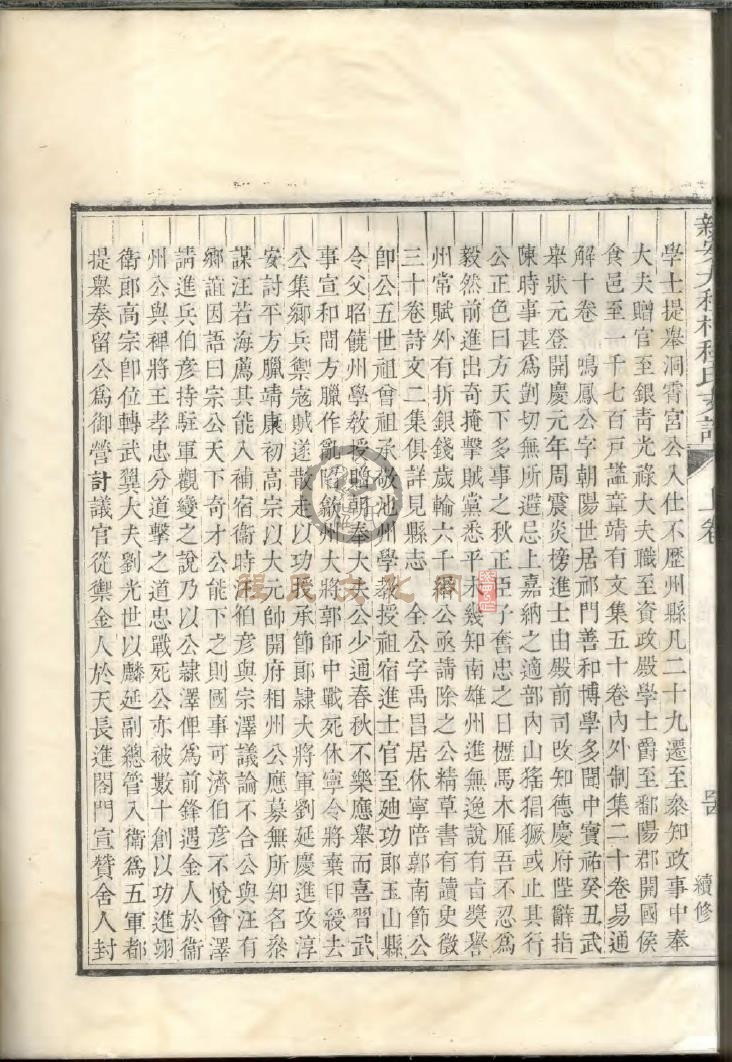 新安大程村程氏支譜
上卷
續修
學士提舉洞霄宮公入仕不歷州縣凡二十九遷至叅知政事中奉
大夫贈官至銀靑光祿大夫職至資政殿學士爵至鄱陽郡開國侯
食邑至一千七百戸謚章靖有文集五十卷內外制集二十卷易通
解十卷 鳴鳳公字朝陽世居祁門善和博學多聞中寶祐癸丑武
舉狀元登開慶元年周震炎榜進士由殿前司改知德慶府陛辭指
陳時事甚爲剴切無所避忌上嘉納之適部內山猺猖獗或止其行
公正色曰方天下多事之秋正臣子奮忠之日櫪馬木雁吾不忍爲
毅然前進出奇掩擊賊黨悉平未幾知南雄州進無逸說有旨奬譽
州常賦外有折銀錢歲輸六千緡公亟請除之公精草書有讀史徵
三十卷詩文二集俱詳見縣志 全公字禹昌居休寧陪郭南節公
卽公五世祖曾祖承敬池州學敎授祖宿進士官至廸功郎玉山縣
令父昭饒州學敎授贈朝奉大夫公少通春秋不樂應舉而喜習武
事宣和間方臘作亂陷歙州大將郭師中戰死休寧令將棄印綬去
公集鄉兵禦寇賊遂散走以功授承節郞隷大將軍劉延慶進攻淳
安討平方臘靖康初高宗以大元帥開府相州公應募無所知名叅
謀汪若海薦其能入補宿衞時汪伯彥與宗澤議論不合公與汪有
鄉誼因語曰宗公天下奇才公能下之則國事可濟伯彥不悅會澤
請進兵伯彥持駐軍觀變之說乃以公隷澤俾爲前鋒遇金人於衞
州公與裨將王孝忠分道擊之道忠戰死公亦被數十創以功進翊
衞郎高宗卽位轉武翼大夫劉光世以麟延副總管入衞爲五軍都
提舉奏留公爲御營討議官從禦金人於天長進閤門宣贊舍人封